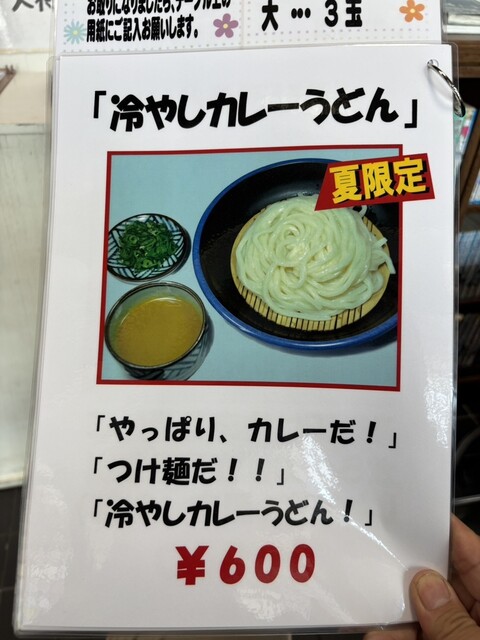 お取りになりましたら、テーブル上の
用紙にご記入お願いします。
大 … 3玉
「冷やしカレーうどん」
夏限定
「やっぱり、カレーだ！」
「つけ麺だ！！」
「冷やしカレーうどん！」
￥600